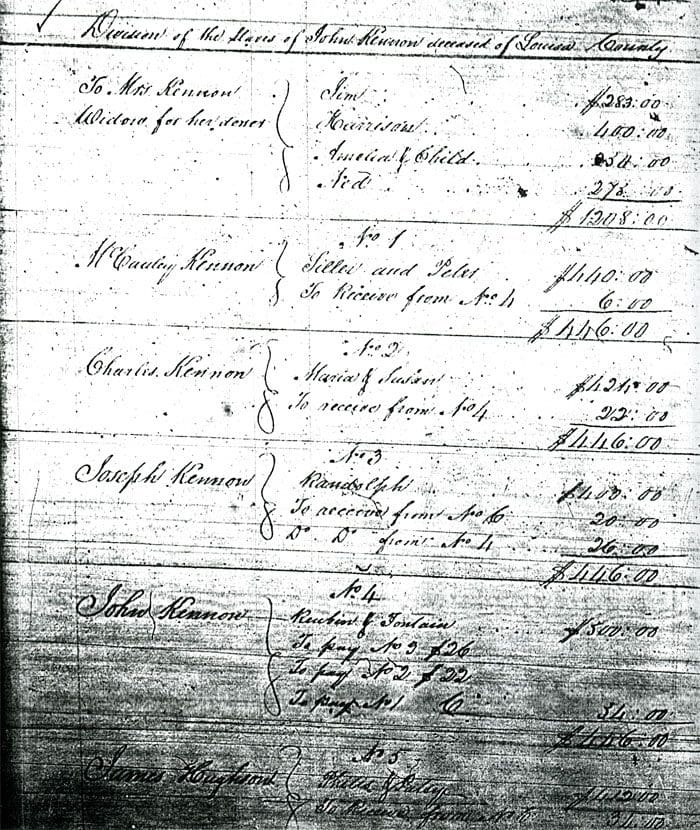 Division of the Slaves of John Kennon deceased of Louisa County
To Mrs Kennon Jim $283:00
Widow for her dower Harrison 400:00
Amelia & Child 254:00
Ned 00
$1208:00
No 1
McCauley Kennon and $440:00
To Receive from No 4 6:00
$446:00
No 2
Charles Kennon Maria & Susan $424:00
To receive from No 4 22:00
$446:00
No 3
Joseph Kennon Randolph $400:00
To receive from No 6 20:00
Do Do from No 4 26:00
$446:00
No 4
John Kennon Reubin & Fontain $500:00
To pay No 3 $26
To pay No 2 $22
To pay No 1 6 54:00
$446:00
No 5
James Hughson &
To Receive from No 6